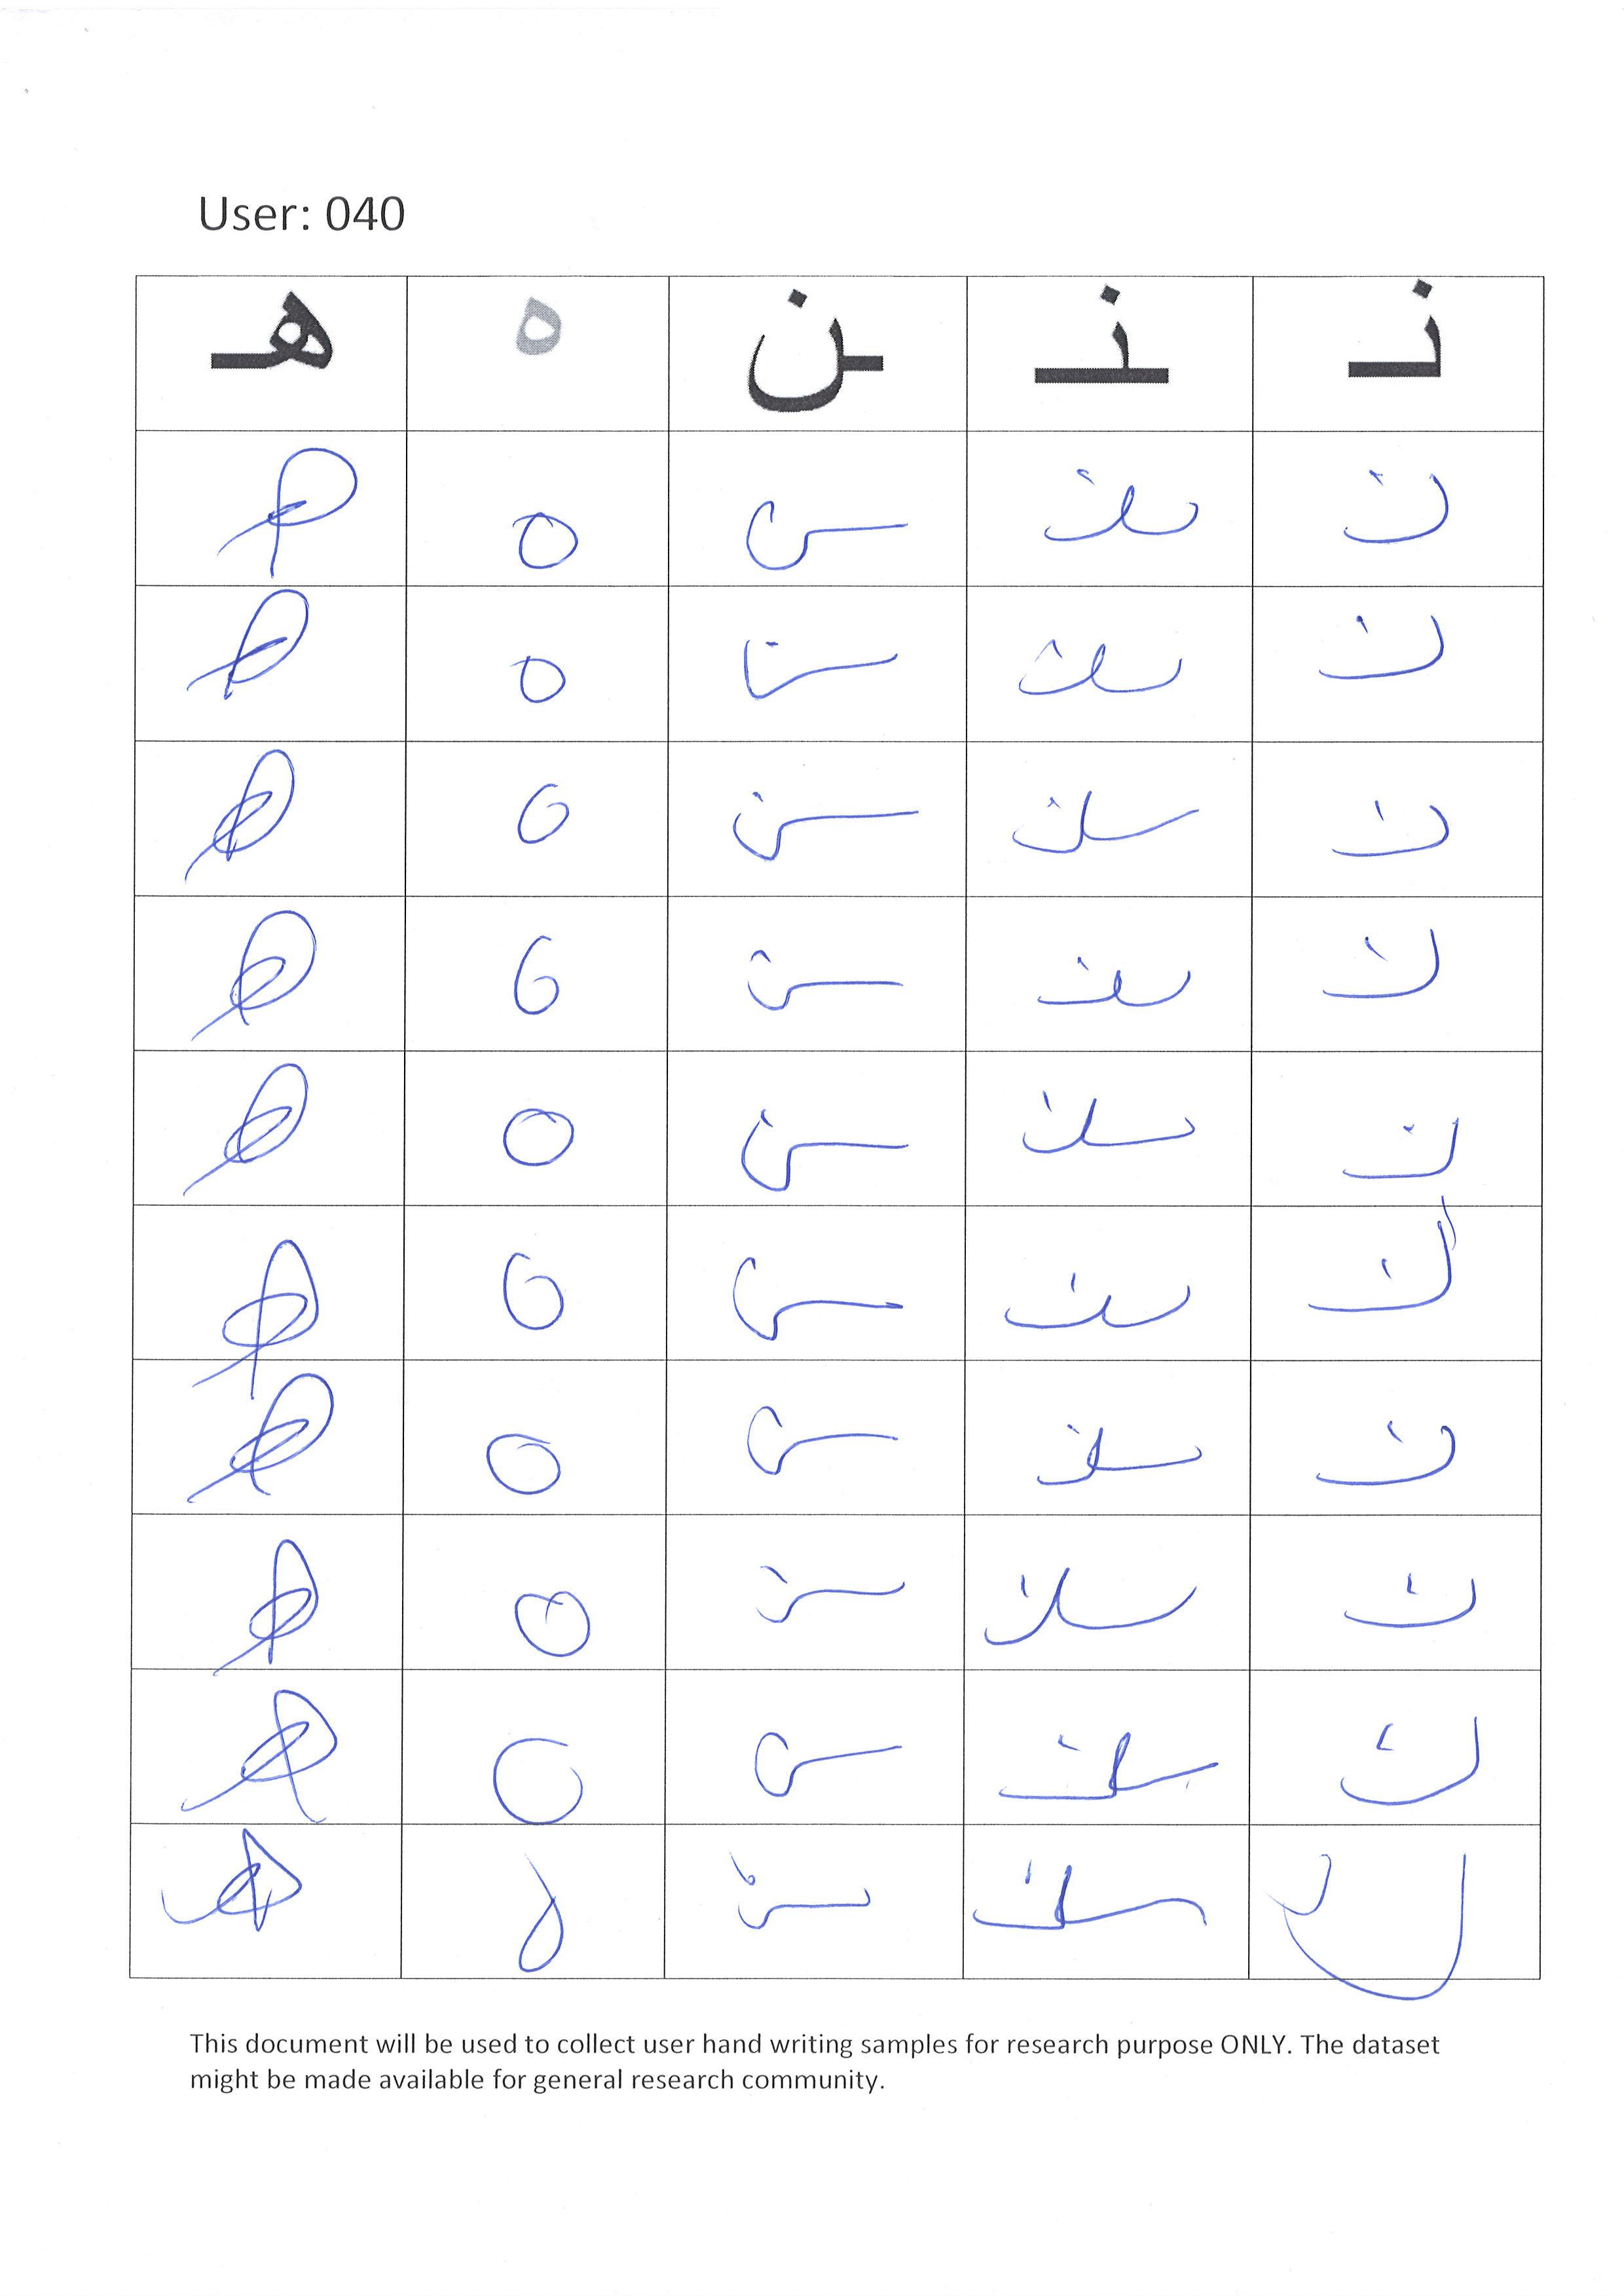 User: 040
نـ ـنـ ـن ه هـ
نـ ـنـ ـن ه هـ
نـ ـنـ ـن ه هـ
نـ ـنـ ـن ه هـ
نـ ـنـ ـن ه هـ
نـ ـنـ ـن ه هـ
نـ ـنـ ـن ه هـ
نـ ـنـ ـن ه هـ
نـ ـنـ ـن ه هـ
نـ ـنـ ـن ه هـ
نـ ـنـ ـن ه هـ
This document will be used to collect user hand writing samples for research purpose ONLY. The dataset
might be made available for general research community.